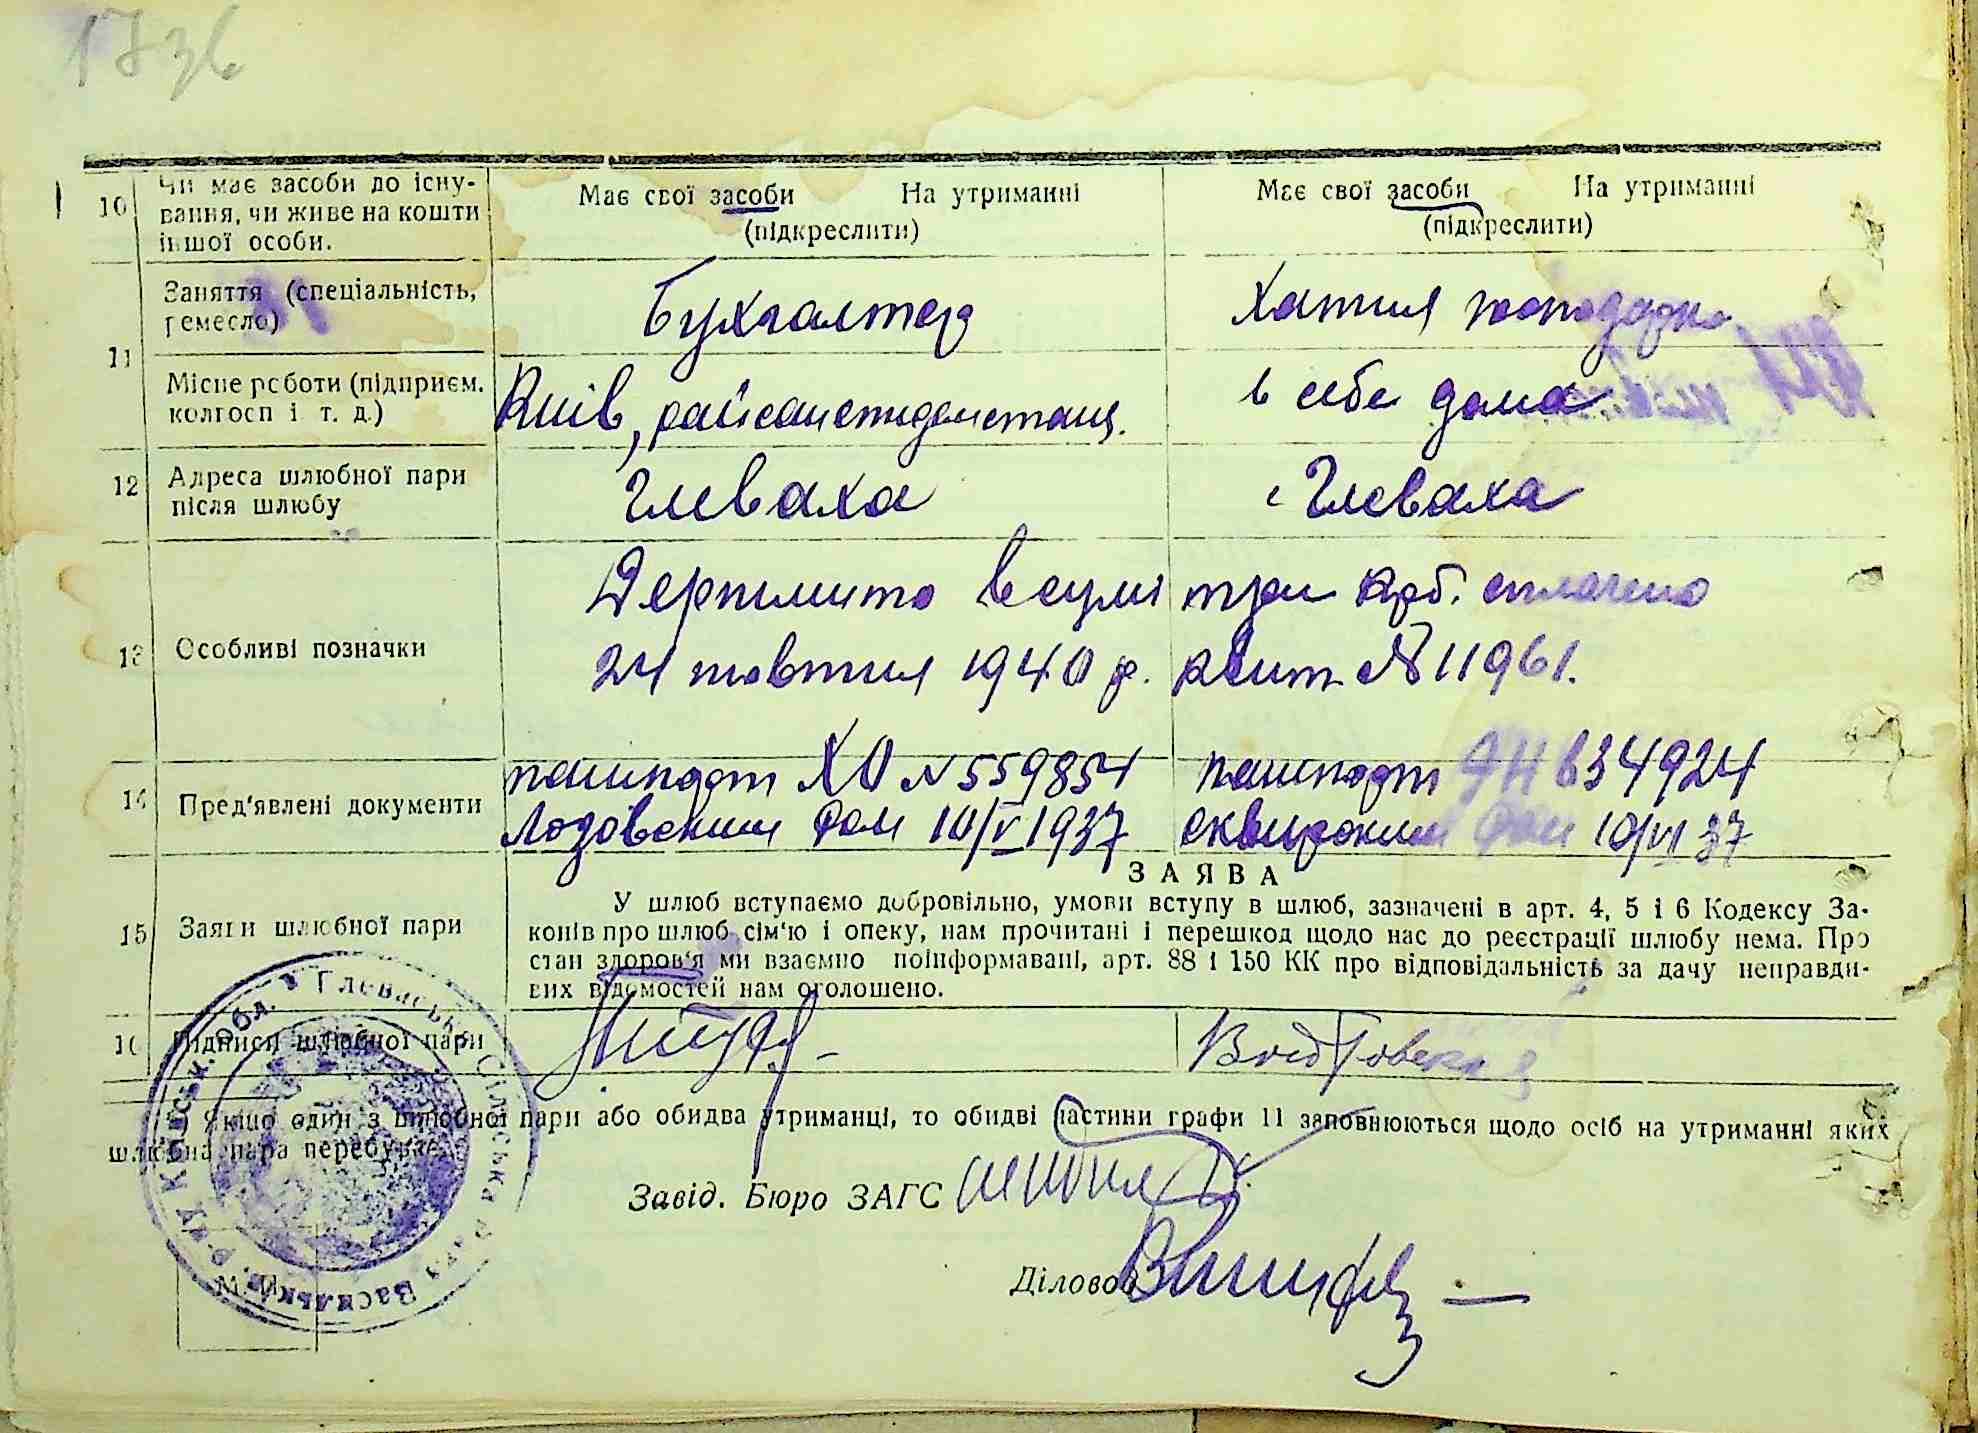 1736
10 Чи має засоби до існу-
вання, чи живе на кошти
іншої особи.
Має свої засоби На утриманні
(підкреслити)
Має свої засоби На утриманні
(підкреслити)
11
Заняття (спеціальність,
ремесло)
Бухгалтер
Хатня господарка
Місце роботи (підприєм.
колгосп і т. д.)
Київ,
в себе дома
12 Адреса шлюбної пари
після шлюбу
Глеваха
с Глеваха
13 Особливі позначки
Держмито в сумі три крб. сплачено
24 жовтня 1940 р. квит № 11961.
14 Пред'явлені документи
пашпорт ХО № 559854
Лозовским РОМ 10/V 1937
пашпорт ЯН 634924
Сквирским РОМ 10/VI 37
15 Заяви шлюбної пари
ЗАЯВА
У шлюб вступаємо добровільно, умови вступу в шлюб, зазначені в арт. 4, 5 і 6 Кодексу За-
конів про шлюб сім'ю і опеку, нам прочитані і перешкод щодо нас до реєстрації шлюбу нема. Про
стан здоров'я ми взаємно поінформавані, арт. 88 і 150 КК про відповідальність за дачу неправди-
вих відомостей нам оголошено.
16 Підписи шлюбної пари
Якщо один з шлюбної пари або обидва утриманці, то обидві частини графи 11 заповнюються щодо осіб на утриманні яких
шлюбна пара перебуває.
Завід. Бюро ЗАГС
Діловод
М. П.
Глеваська сільська рада Васильк. р-ну Київськ. обл.